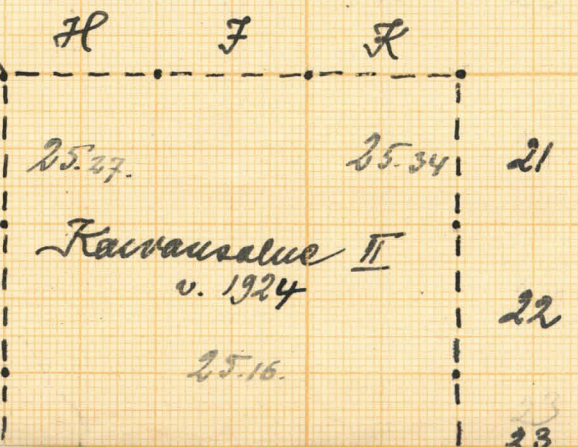 H J K
25.27. 25.34 21
Kaivausalue II
v. 1924
22
25.16.
23
23